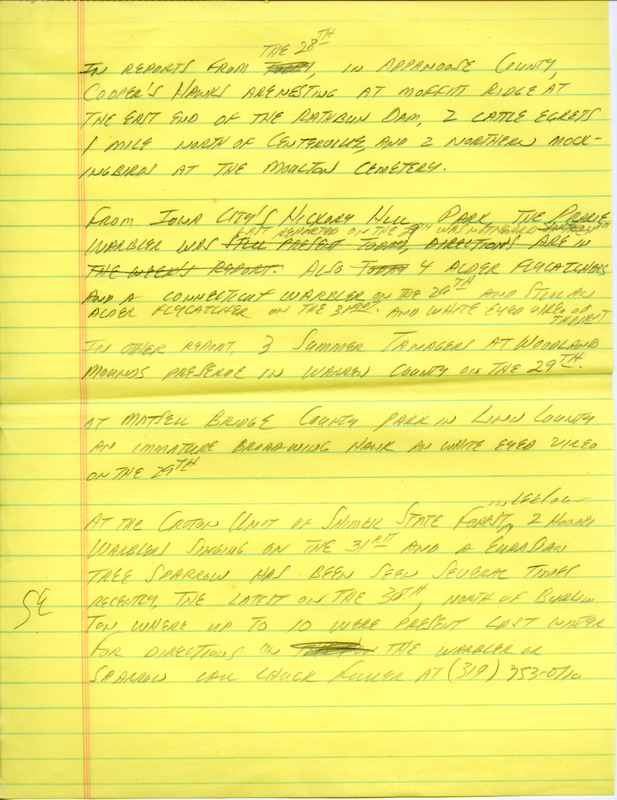 THE 28TH
IN REPORTS FROM TODAY, IN APPANOOSE COUNTY,
COOPER'S HAWKS ARE NESTING AT MOFFITT RIDGE AT
THE EAST END OF THE RATHBUN DAM, 2 CATTLE EGRETS
1 MILE NORTH OF CENTERVILLE, AND 2 NORTHERN MOCK-
INGBIRDS AT THE MOULTON CEMETERY.
FROM IOWA CITY'S HICKORY HILL PARK THE PRAIRIE
LAST REPORTED ON THE 29TH WAS NOT
WARBLER WAS STILL PRESENT TODAY, DIRECTIONS ARE IN
THE WEEK'S REPORT. ALSO TODAY 4 ALDER FLYCATCHERS
AND A CONNECTICUT WARBLER ON THE 29TH AND STILL AN
ALDER FLYCATCHER ON THE 31RST. AND WHITE EYED VIREO ON
THE 31RST
IN OTHER REPORT, 3 SUMMER TANAGERS AT WOODLAND
MOUNDS PRESERVE IN WARREN COUNTY ON THE 29TH.
AT MATSELL BRIDGE COUNTY PARK IN LINN COUNTY
AN IMMATURE BROADWING HAWK AN WHITE EYED VIREO
ON THE 29TH
in Lee Co
AT THE CROTON UNIT OF SHIMEK STATE FOREST, 2 HOODED
WARBLERS SINGING ON THE 31RST AND A EURASIAN
TREE SPARROW HAS BEEN SEEN SEVERAL TIMES
RECENTLY, THE LATEST ON THE 30TH, NORTH OF BURLIN
TON WHERE UP TO 10 WERE PRESENT LAST WINTER
FOR DIRECTIONS ON THE WARBLER OR
SPARROW CALL CHUCK FULLER AT (319) 753-0710